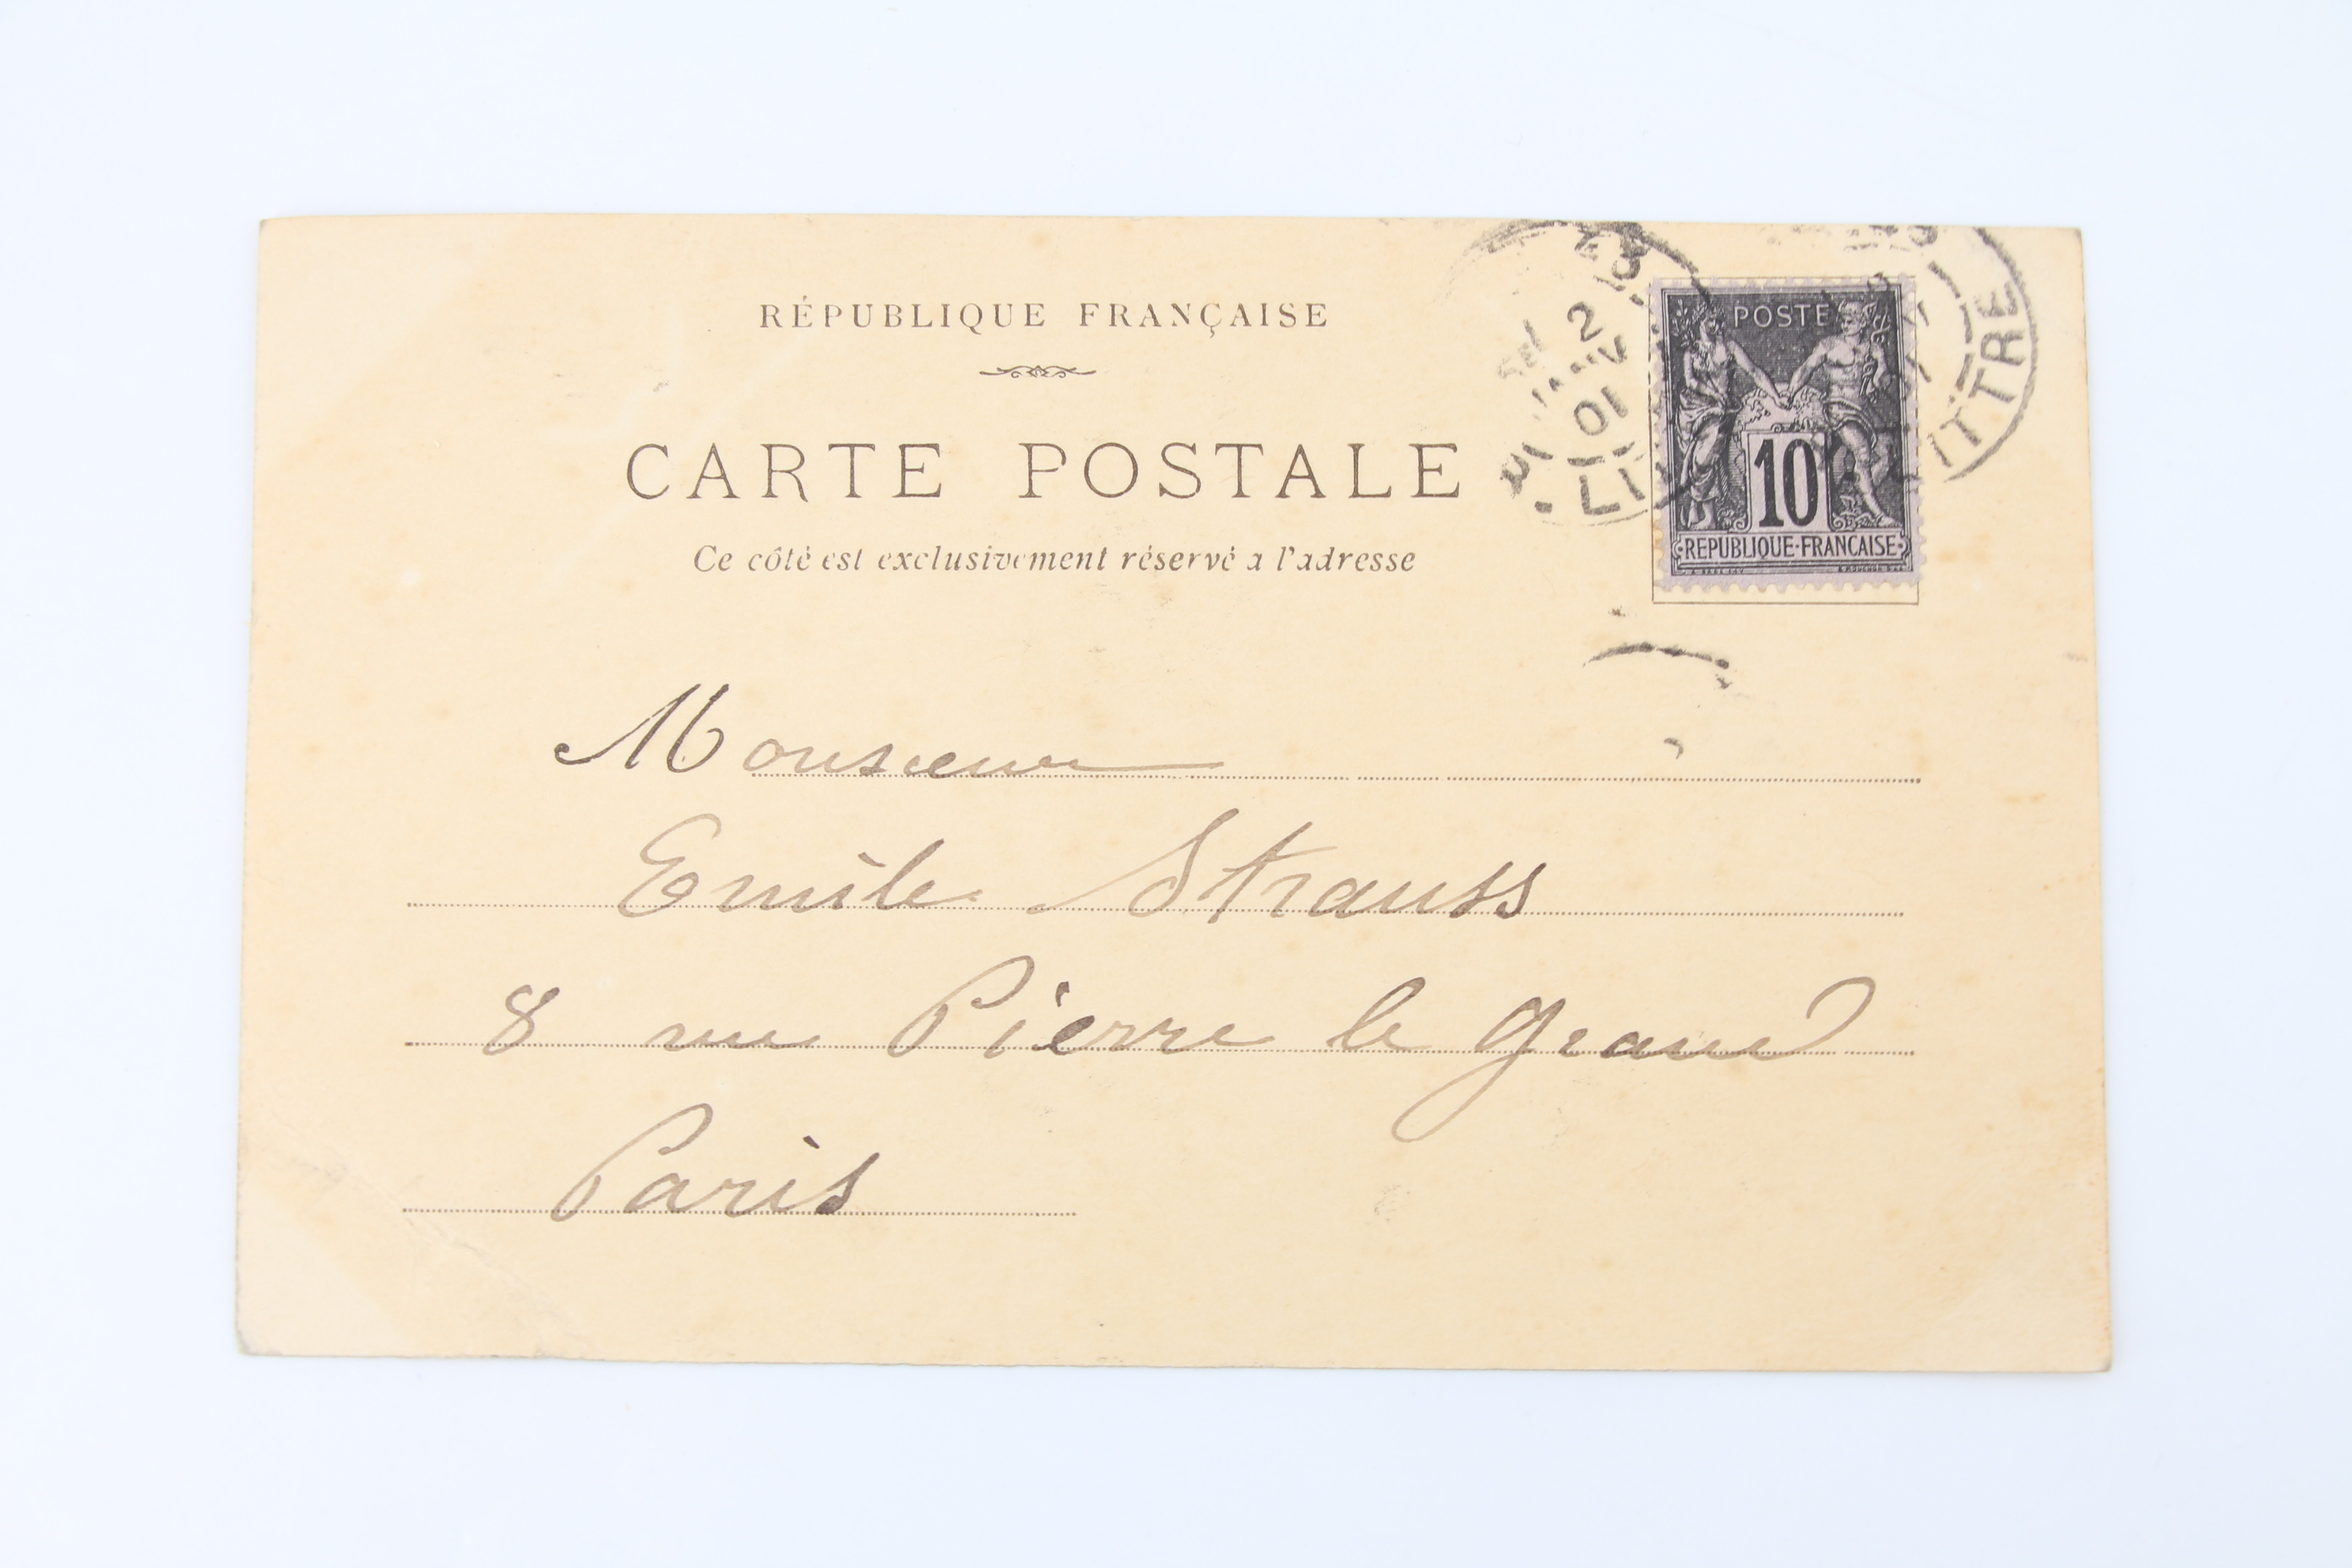 RÉPUBLIQUE FRANÇAISE
CARTE POSTALE
Ce côté est exclusivement réservé a l'adresse
2
JANV
01
LI
ITTRE
POSTE
10
REPUBLIQUE·FRANCAISE
Monsieur
Emile Strauss
8 rue Pierre le Grand
Paris